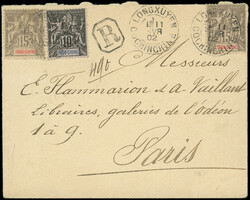 15
10
R
LONGXUYEN
11
02
COCHINCHINE
LONGXUYEN
COCHINCHINE
15
490
Messieurs
E. Flammarion et A. Vaillant
Libraires, galeries de l'odéon
1 à 9.
Paris